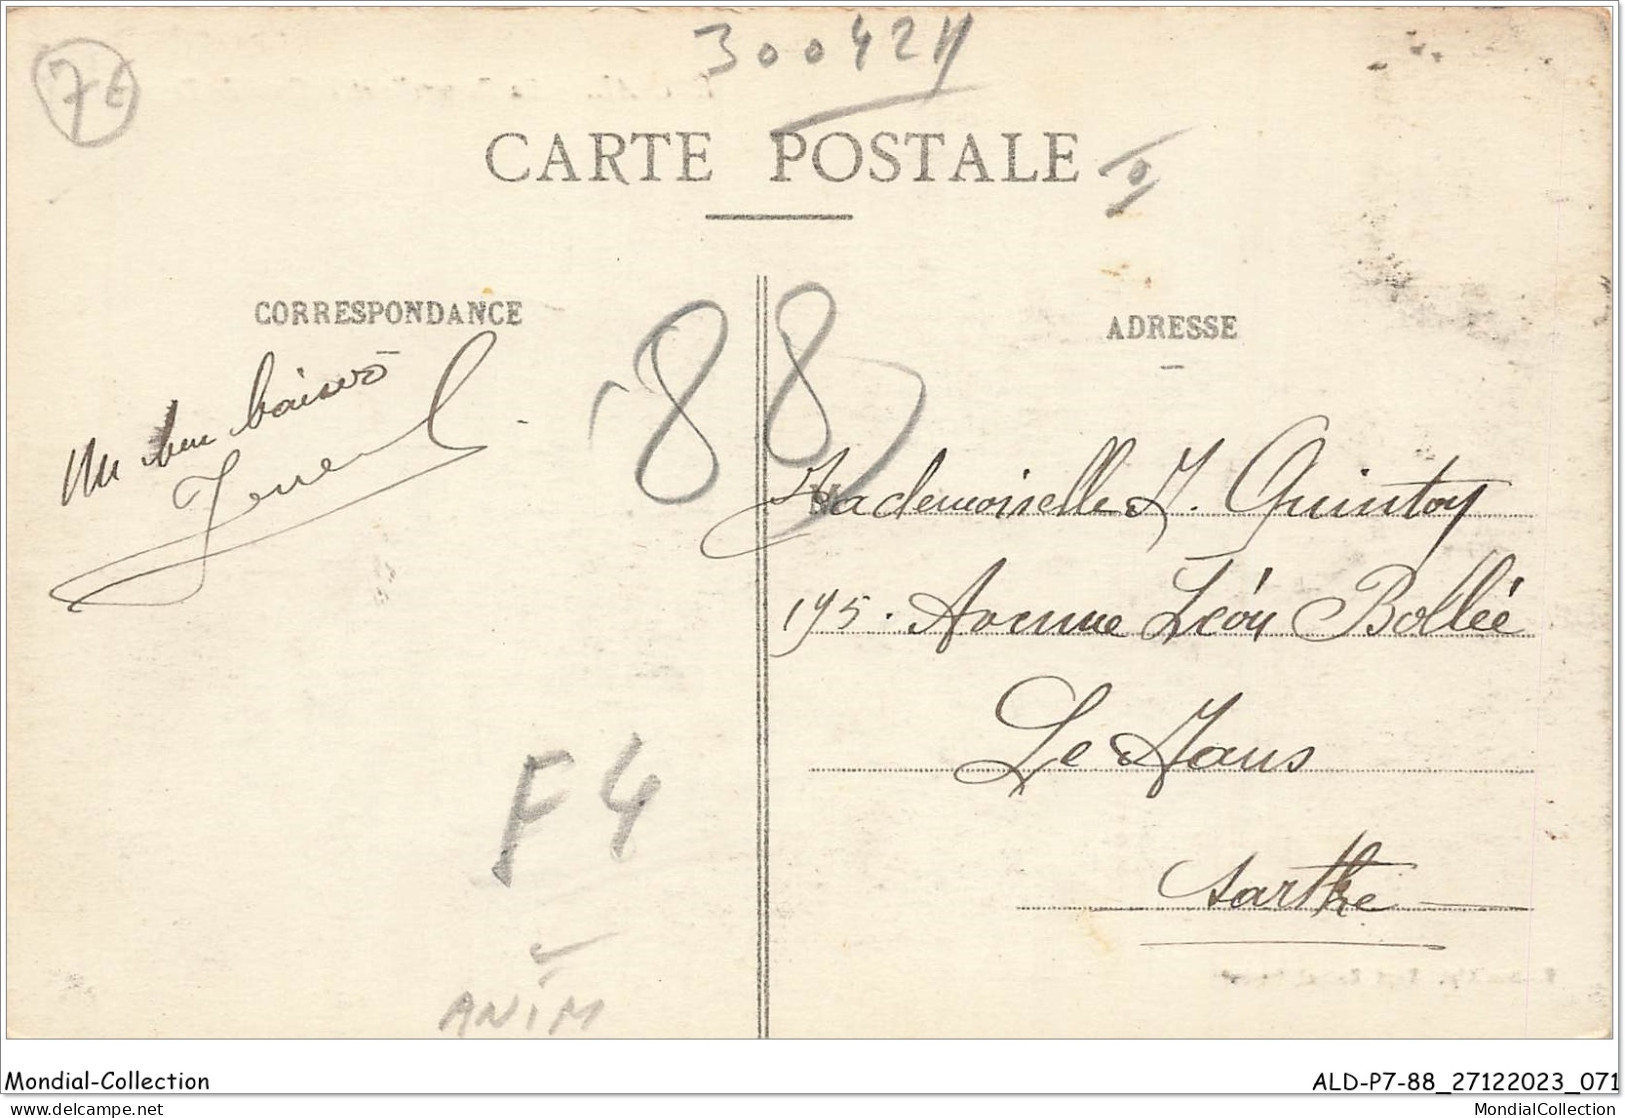 7€
30042H
CARTE POSTALE
CORRESPONDANCE
ADRESSE
88
Un bon baiser
Mademoiselle M. Quintoy
195. Avenue Léon Bollée
Le Mans
Sarthe
F4
ANIM
Mondial-Collection
ALD-P7-88_27122023_071
Copyright © 2023
MondialCollection